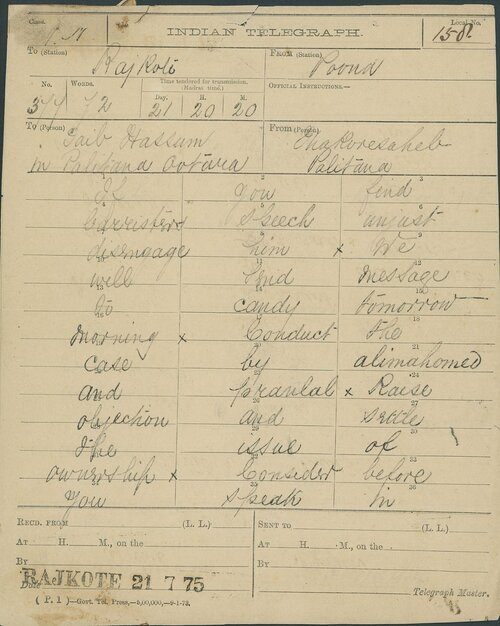 Class.
INDIAN TELEGRAPH.
Local No.
158.
To (Station)
Rajkote
From (Station)
Poona
No.
Words.
Time tendered for transmission.
(Madras time.)
Day. H. M.
72 21 20 20
Official Instructions.—
To (Person)
Taib Hassum
in Palitana Ootara
From (Person)
Thakoresaheb
Palitana
If you find
barristers speech unjust
disengage him x We
will send message
to candy tomorrow
morning x Conduct the
case by alimahomed
and pranlal x Raise
objection and settle
the issue of
ownership x Consider before
You speak in
Recd. from (L. L.)
At H. M., on the
By
Date
RAJKOTE 21 7 75
Sent to (L. L.)
At H. M., on the
By
Telegraph Master.
( P. 1 )—Govt. Tel. Press,—5,00,000,—9-1-73.